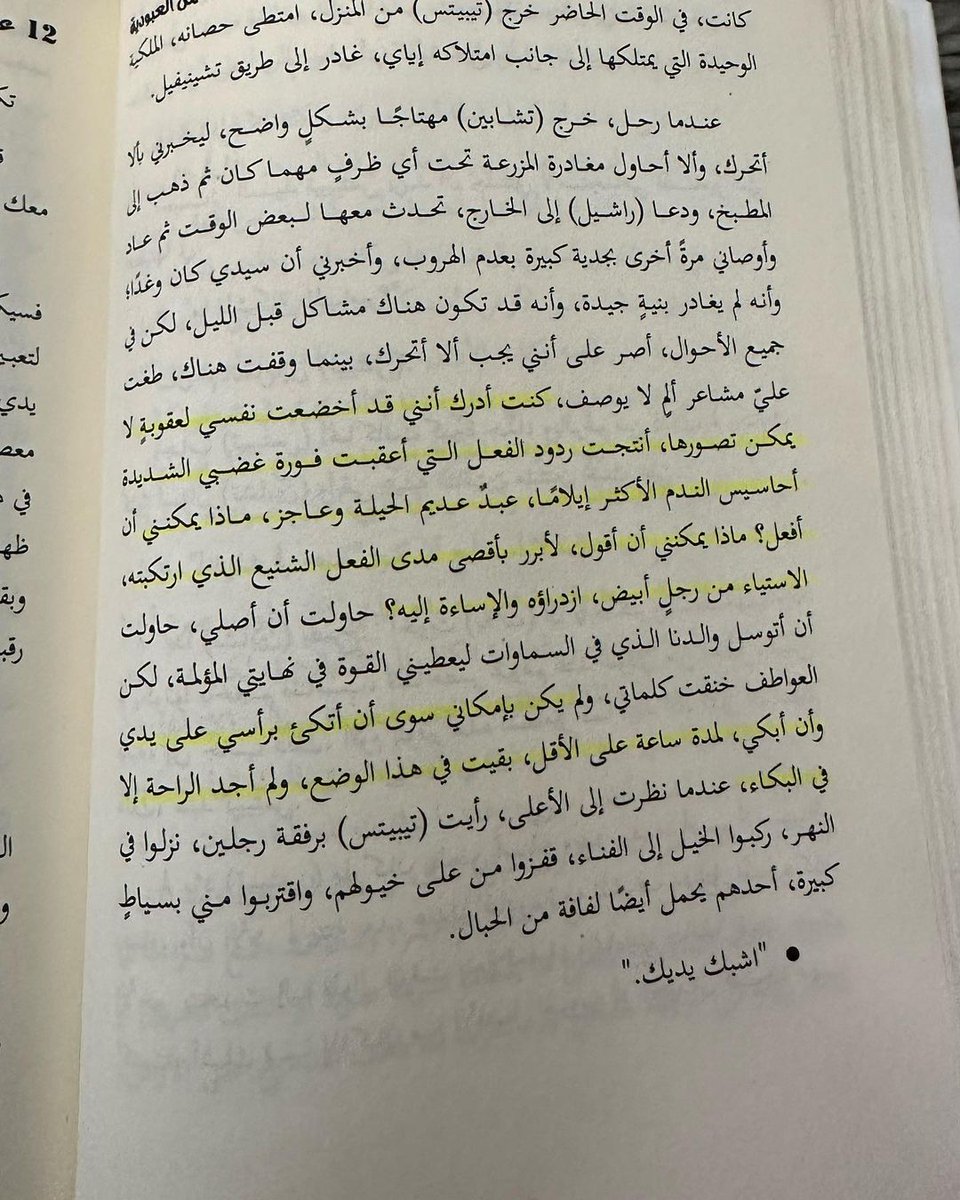 من العبودية
12
كانت، في الوقت الحاضر خرج (تيبيتس) من المنزل، امتطى حصانه، الملكية
الوحيدة التي يمتلكها إلى جانب امتلاكه إياي، غادر إلى طريق تشينيفيل.
عندما رحل، خرج (تشابين) مهتاجًا بشكلٍ واضح، ليخبرني بألا
أتحرك، وألا أحاول مغادرة المزرعة تحت أي ظرفٍ مهما كان ثم ذهب إلى
المطبخ، ودعا (راشيل) إلى الخارج، تحدث معها لبعض الوقت ثم عاد
وأوصاني مرةً أخرى بجدية كبيرة بعدم الهروب، وأخبرني أن سيدي كان وغدًا؛
وأنه لم يغادر بنيةٍ جيدة، وأنه قد تكون هناك مشاكل قبل الليل، لكن في
جميع الأحوال، أصر على أنني يجب ألا أتحرك، بينما وقفت هناك، طغت
عليّ مشاعر ألمٍ لا يوصف، كنت أدرك أنني قد أخضعت نفسي لعقوبةٍ لا
يمكن تصورها، أنتجت ردود الفعل التي أعقبت فورة غضبي الشديدة
أحاسيس الندم الأكثر إيلامًا، عبدٌ عديم الحيلة وعاجز، ماذا يمكنني أن
أفعل؟ ماذا يمكنني أن أقول، لأبرر بأقصى مدى الفعل الشنيع الذي ارتكبته،
الاستياء من رجلٍ أبيض، ازدراؤه والإساءة إليه؟ حاولت أن أصلي، حاولت
أن أتوسل والدنا الذي في السماوات ليعطيني القوة في نهايتي المؤلمة، لكن
العواطف خنقت كلماتي، ولم يكن بإمكاني سوى أن أتكئ برأسي على يدي
وأن أبكي، لمدة ساعة على الأقل، بقيت في هذا الوضع، ولم أجد الراحة إلا
في البكاء، عندما نظرت إلى الأعلى، رأيت (تيبيتس) برفقة رجلين، نزلوا في
النهر، ركبوا الخيل إلى الفناء، قفزوا من على خيولهم، واقتربوا مني بسياطٍ
كبيرة، أحدهم يحمل أيضًا لفافة من الحبال.
● "اشبك يديك."
معك
يدي